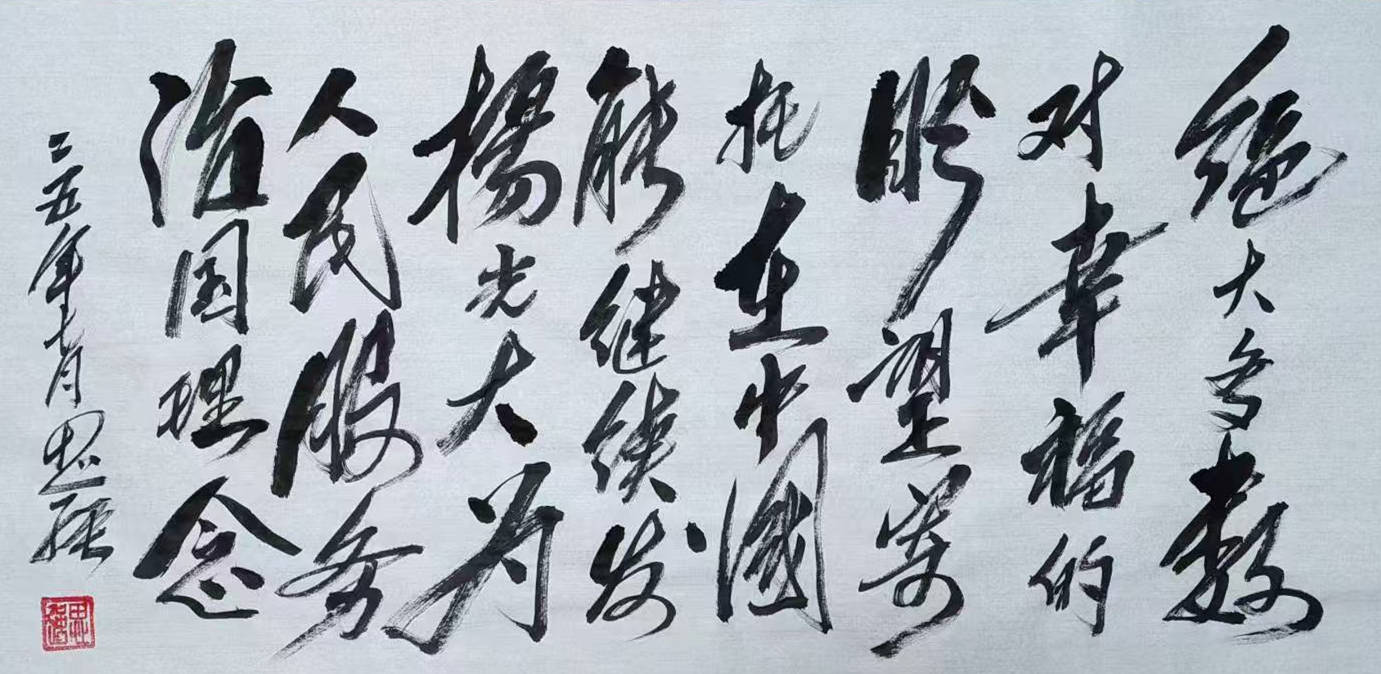 绝大多数
对幸福的
盼望寄
托在中國
能继续发
楊光大为
人民服务
治国理念
二五年七月思